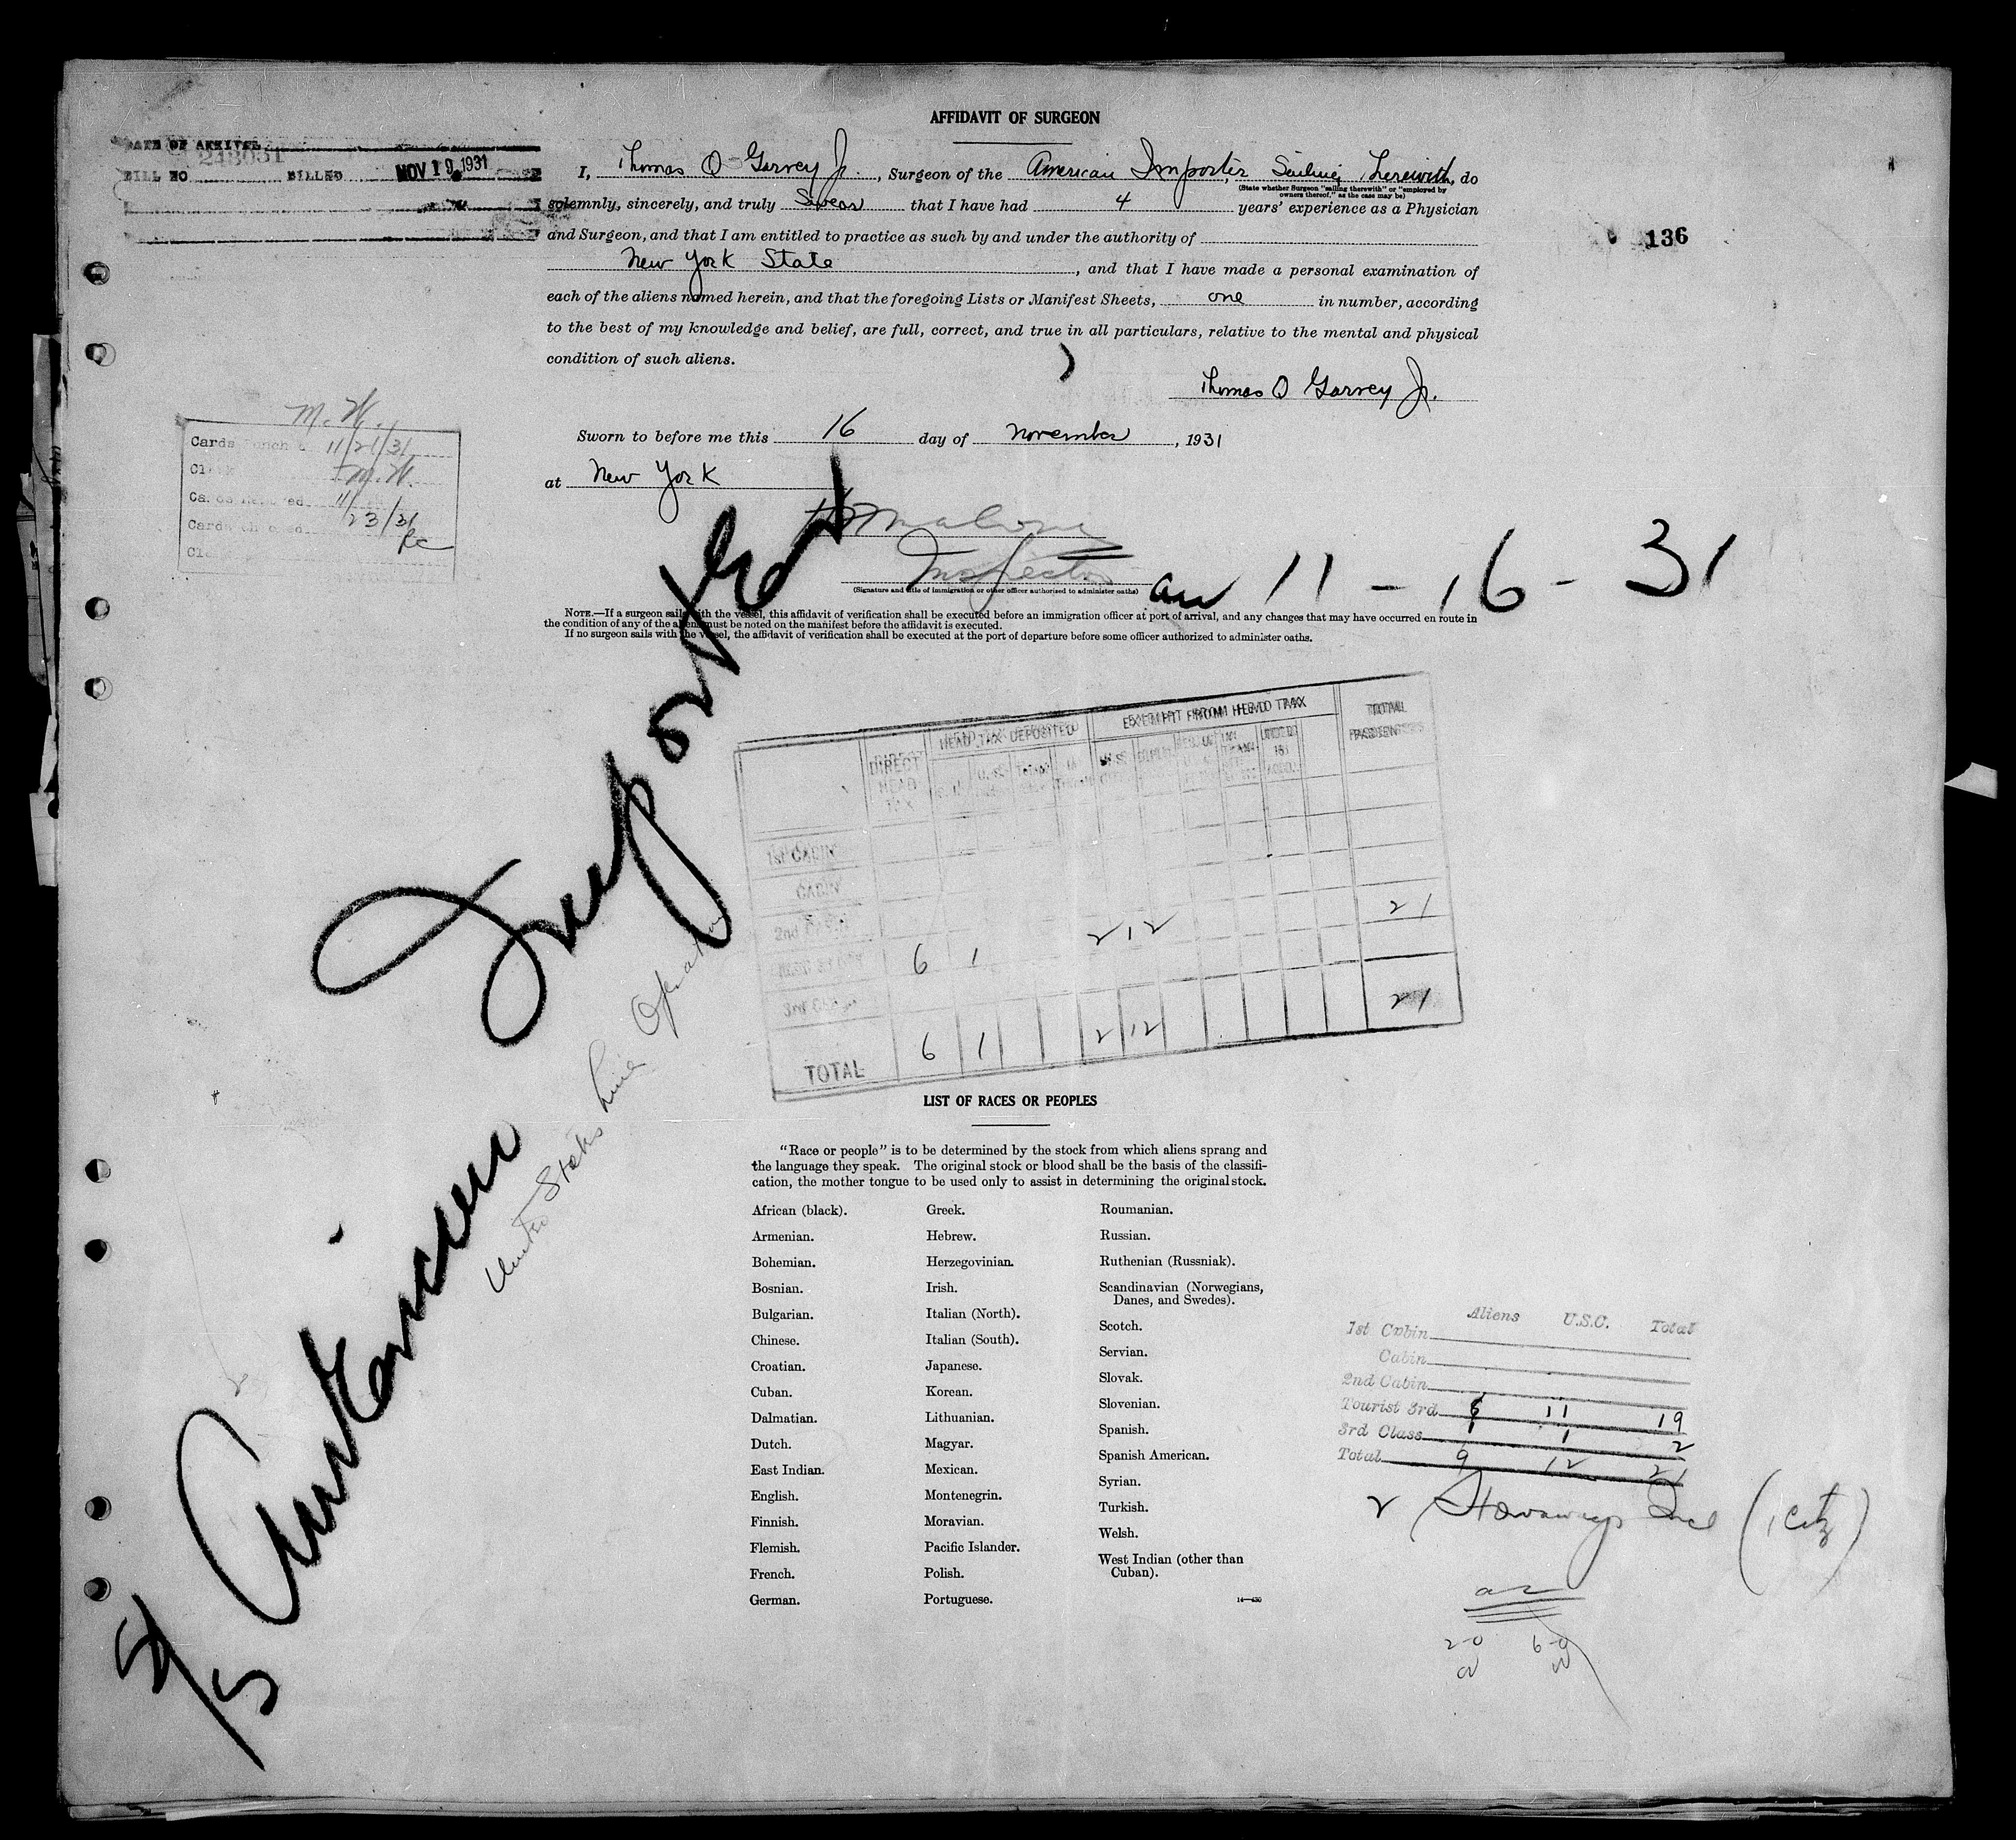 AFFIDAVIT OF SURGEON
DATE OF ARRIVAL
248051
BILL NO BILLED NOV 19 1931
136
I, Thomas O Garvey Jr., Surgeon of the American Importer, Sailing Therewith, do
(State whether Surgeon "sailing therewith" or "employed by
owners thereof," as the case may be)
solemnly, sincerely, and truly Swear that I have had 4 years' experience as a Physician
and Surgeon, and that I am entitled to practice as such by and under the authority of
New York State, and that I have made a personal examination of
each of the aliens named herein, and that the foregoing Lists or Manifest Sheets, one in number, according
to the best of my knowledge and belief, are full, correct, and true in all particulars, relative to the mental and physical
condition of such aliens.
Thomas O Garvey Jr.
Sworn to before me this 16 day of November, 1931
at New York
Malone
Inspector
(Signature and title of immigration or other officer authorized to administer oaths)
arr 11-16-31
NOTE.—If a surgeon sails with the vessel, this affidavit of verification shall be executed before an immigration officer at port of arrival, and any changes that may have occurred en route in
the condition of any of the aliens must be noted on the manifest before the affidavit is executed.
If no surgeon sails with the vessel, the affidavit of verification shall be executed at the port of departure before some officer authorized to administer oaths.
M.W.
Cards 11/21/31
M.W.
11/23/31
Cards
S/S American Importer
United States Line
DIRECT HEAD TAX
HEAD TAX DEPOSITED
EXEMPT FROM HEAD TAX
TOTAL
1st CABIN
CABIN
2nd CABIN
6 1 2 12 21
3rd CLASS
TOTAL 6 1 2 12 21
LIST OF RACES OR PEOPLES
"Race or people" is to be determined by the stock from which aliens sprang and
the language they speak. The original stock or blood shall be the basis of the classifi-
cation, the mother tongue to be used only to assist in determining the original stock.
African (black).
Armenian.
Bohemian.
Bosnian.
Bulgarian.
Chinese.
Croatian.
Cuban.
Dalmatian.
Dutch.
East Indian.
English.
Finnish.
Flemish.
French.
German.
Greek.
Hebrew.
Herzegovinian.
Irish.
Italian (North).
Italian (South).
Japanese.
Korean.
Lithuanian.
Magyar.
Mexican.
Montenegrin.
Moravian.
Pacific Islander.
Polish.
Portuguese.
Roumanian.
Russian.
Ruthenian (Russniak).
Scandinavian (Norwegians,
Danes, and Swedes).
Scotch.
Servian.
Slovak.
Slovenian.
Spanish.
Spanish American.
Syrian.
Turkish.
Welsh.
West Indian (other than
Cuban).
14—430
Aliens U.S.C. Total
1st Cabin
Cabin
2nd Cabin
Tourist 3rd 11 19
3rd Class 1 1 2
Total 9 12 21
2 Stowaways Incl (1 Citz)
2-0 6-0